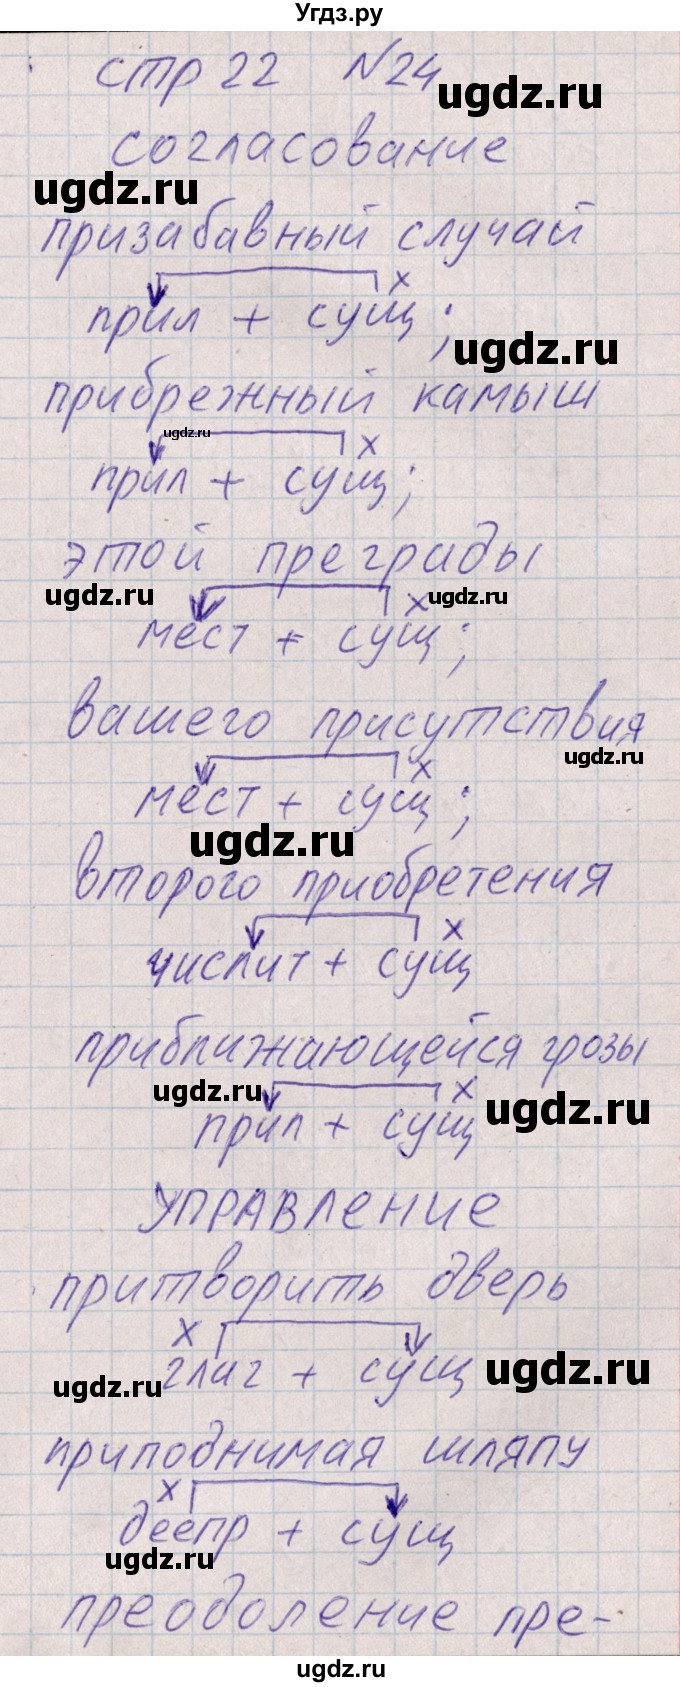 Угдз.ру
стр 22 №24
ugdz.ru
согласование
ugdz.ru
призабавный случай
х
прил + сущ;
ugdz.ru
прибрежный камыш
ugdz.ru
х
прил + сущ;
этой преграды
ugdz.ru
х
ugdz.ru
мест + сущ;
вашего присутствия
ugdz.ru
х
мест + сущ;
ugdz.ru
второго приобретения
х
числит + сущ
приближающейся грозы
ugdz.ru
х
ugdz.ru
прил + сущ
УПРАВЛЕНИЕ
притворить дверь
х
глаг + сущ
ugdz.ru
ugdz.ru
приподнимая шляпу
х
деепр + сущ
ugdz.ru
преодоление пре-
ugdz.ru